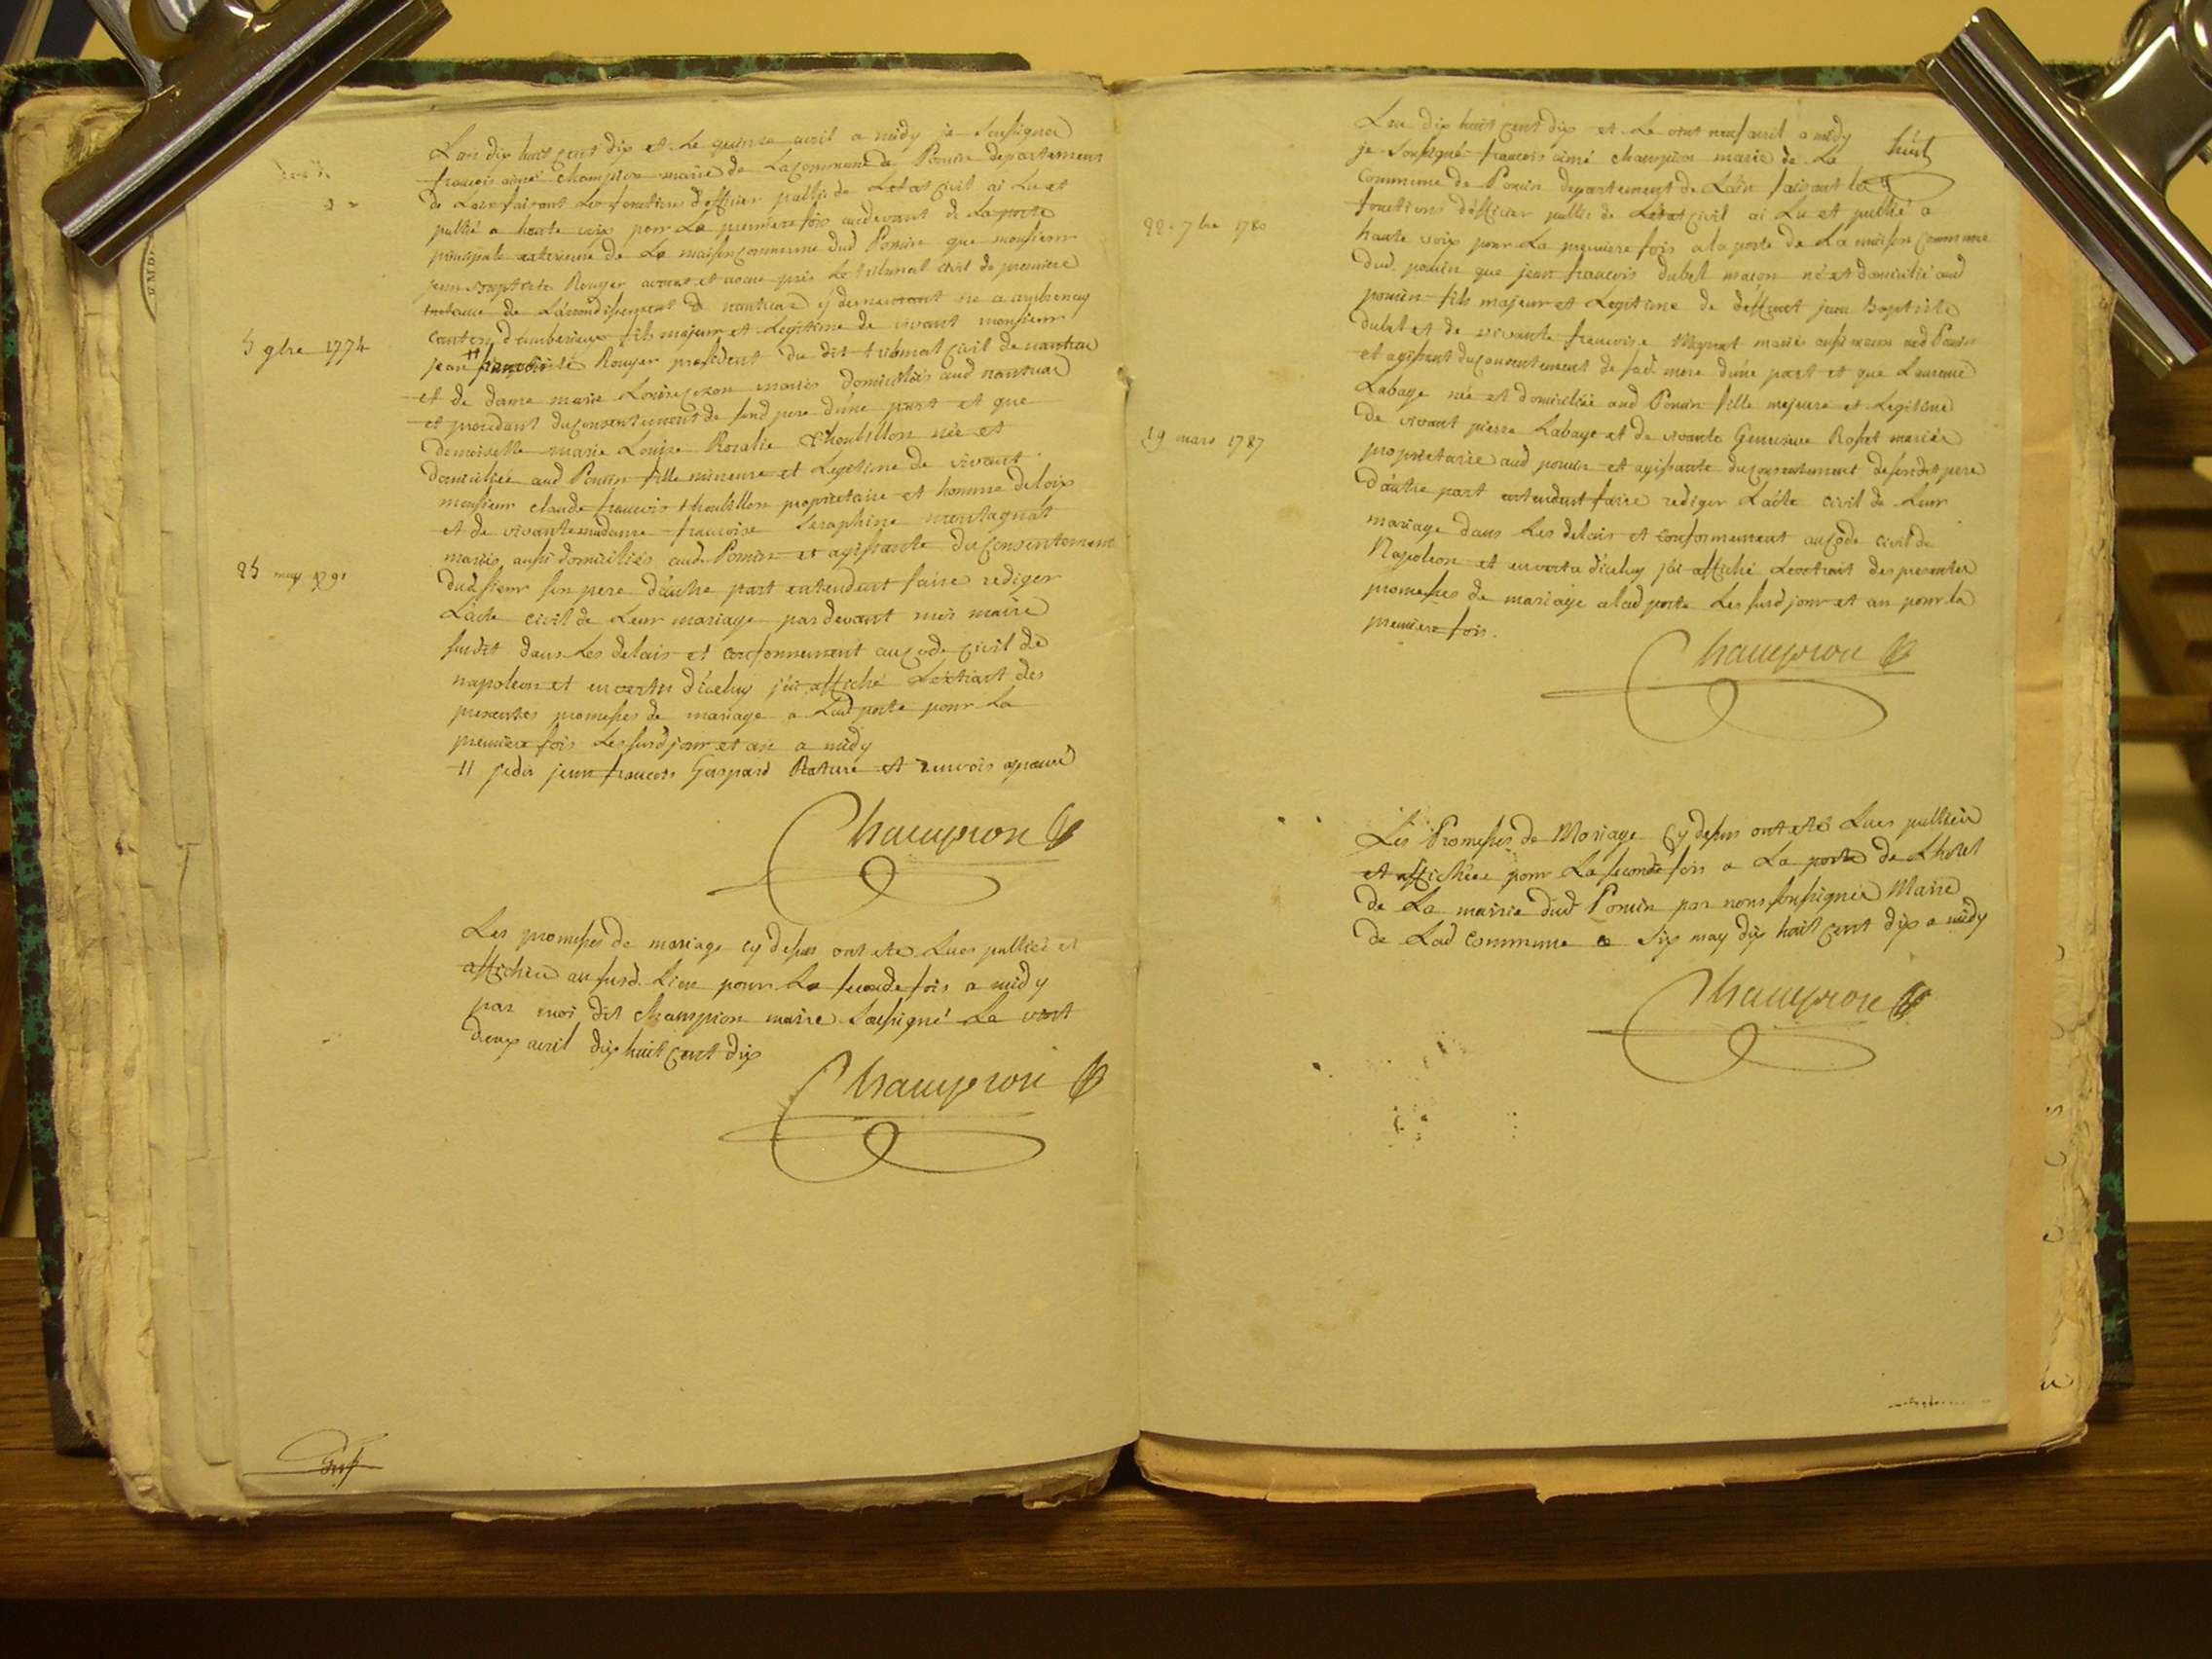 Lan dix huit cent dix et Le quinze avril a midy je Soussigné
francois aimé Champion maire de La Commune de Poncin departement
de Lain faisant Les fonctions d'officier public de Letat civil ai Lu et
publié a haute voix pour La premiere fois audevant de La porte
principale exterieure de La maison commune dud Poncin que monsieur
jean baptiste Rouyer avocat et avoué près Le tribunal civil de premiere
instance de L'arrondissement de nantua y demeurant né a ambronay
canton d'amberieux fils majeur et Legitime de vivant monsieur
5 9bre 1774
jean Rouyer president du dit tribunal civil de nantua
et de dame marie Louise mariés domiciliés aud nantua
et procedant du consentement de sond pere d'une part et que
demoiselle marie Louise Rosalie Thoubillon née et
domiciliée aud Poncin fille mineure et Legitime de vivant
monsieur claude francois thoubillon proprietaire et homme de loix
et de vivante madame francoise Seraphine montagnat
mariés aussi domiciliés aud. Poncin et agissante du consentement
25 may 1791
dud sieur son pere d'autre part entendent faire rediger
L'acte civil de Leur mariage pardevant moi maire
susdit dans Les delais et conformement au code civil de
napoleon et en vertu d'iceluy j'ai affiché L'extrait des
presentes promesses de mariage a Lad porte pour La
premiere fois Les susd jour et an a midy
jean francois Gaspard Rature et renvois aprouvé
Champion
Les promesses de mariage cy dessus ont ete Lues publiées et
affichées au susd. Lieu pour La seconde fois a midy
par moi dit Champion maire Soussigné Le vint
deux avril dix huit cent dix
Champion
Lan dix huit cent dix et Le vint neuf avril a midy
je Soussigné francois aimé champion maire de La
huit
commune de Poncin departement de L'ain faisant les
fonctions d'officier public de L'etat civil ai Lu et publié a
22. 7bre 1780
haute voix pour La premiere fois a la porte de La maison commune
dud. poncin que jean francois dubet macon né et domicilié aud
poncin fils majeur et Legitime de deffunt jean baptiste
dubet et de vivante francoise mariés aud Poncin
et agissant du consentement de sad. mere d'une part et que Laurence
Labaye née et domiciliée aud Poncin fille majeure et Legitime
19 mars 1787
de vivant pierre Labaye et de vivante Genevieve Rosset mariés
proprietaire aud poncin et agissante du consentement de sondit pere
d'autre part entendent faire rediger L'acte civil de Leur
mariage dans Les delais et conformement au code civil de
Napoleon et en vertu d'iceluy j'ai affiché L'extrait des presentes
promesses de mariage a lad porte Les susd jour et an pour la
premiere fois.
Champion
Les Promesses de Mariage Cy dessus ont eté Lues publiées
et affichées pour La seconde fois a La porte de L'hotel
de La mairie dud Poncin par nous soussigné Maire
de Lad commune Le Six may dix huit cent dix a midy
Champion